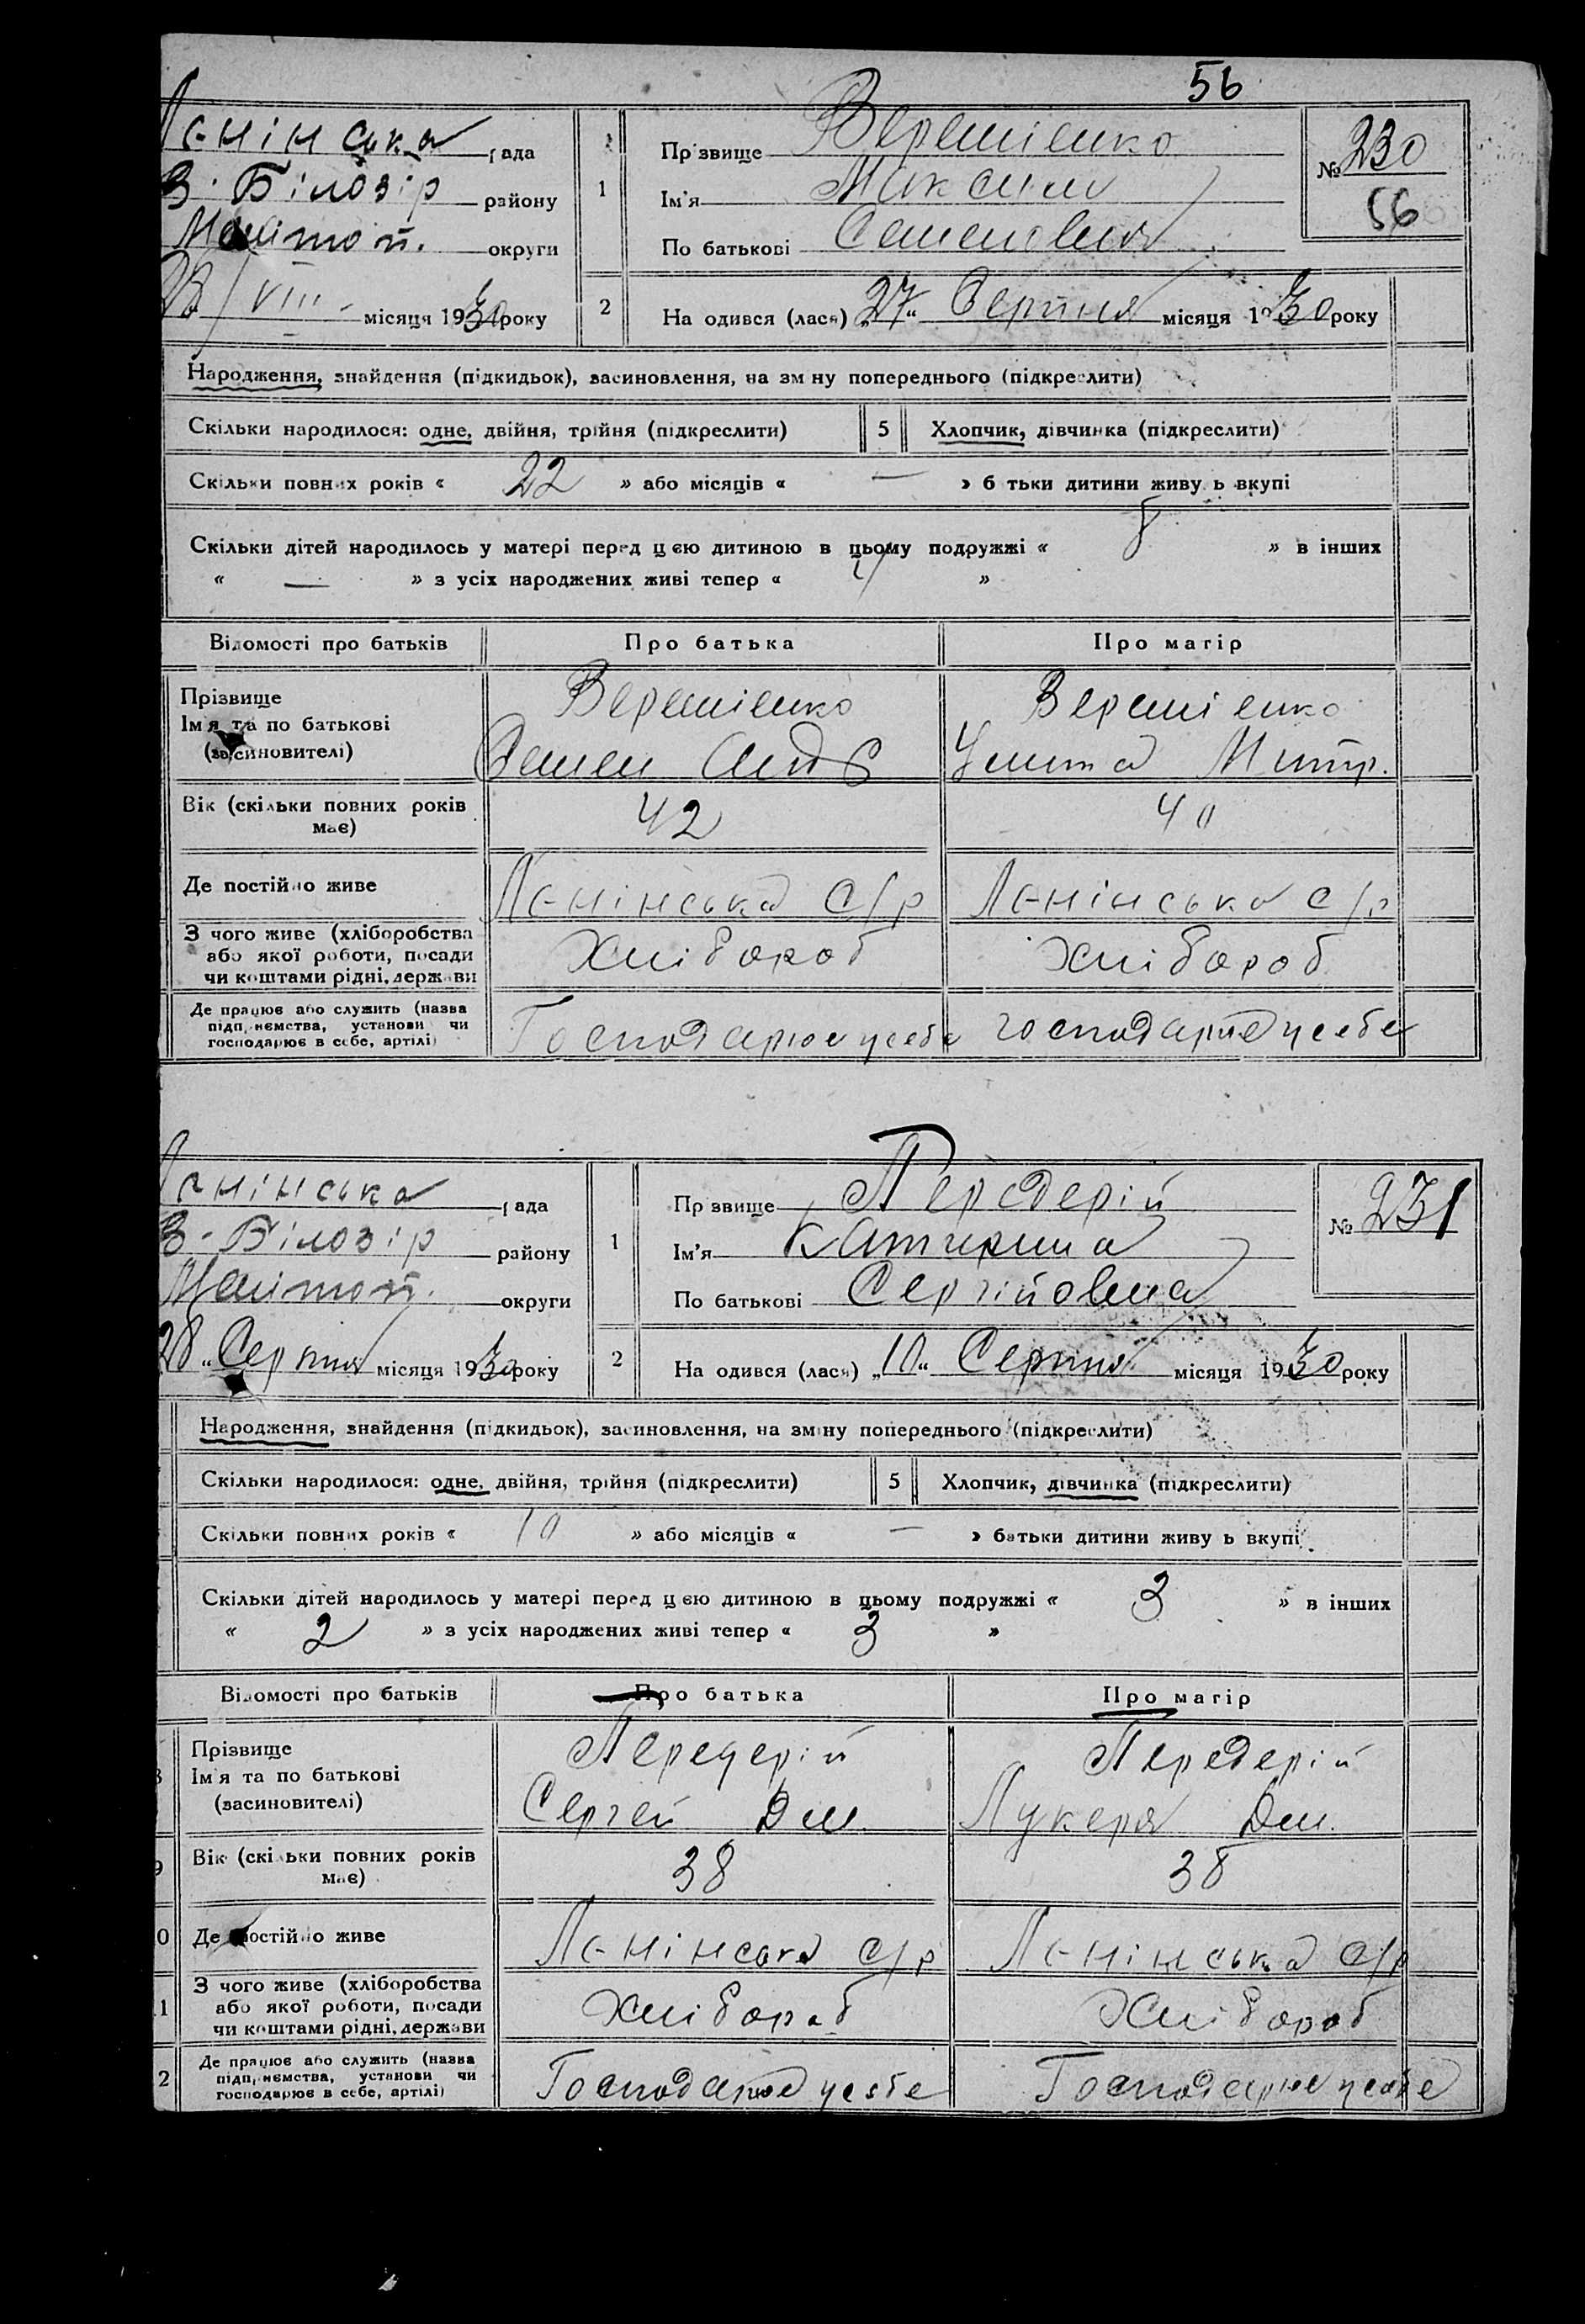 56
Ленінська рада
В. Білозір району
Меліитоп. округи
VIII місяця 1930 року
1
Прізвище Верешіенко
Ім'я Максим
По батькові Семенович
№ 230
56
2
На одився (лася) „27“ Серпня місяця 1930 року
Народження, знайдення (підкидьок), засиновлення, на зм ну попереднього (підкреслити)
Скільки народилося: одне, двійня, трійня (підкреслити) 5 Хлопчик, дівчинка (підкреслити)
Скільки повних років « 22 » або місяців « — » б тьки дитини живу ь вкупі
Скільки дітей народилось у матері перед цією дитиною в цьому подружжі « 8 » в інших
« — » з усіх народжених живі тепер « »
Відомості про батьків Про батька Про матір
Прізвище Верешіенко Верешіенко
Ім'я та по батькові
(засиновителі) Семен Анд Улита Митр.
Вік (скільки повних років 42 40
має)
Де постійно живе Ленінська с/р Ленінська с/р
З чого живе (хліборобства
або якої роботи, посади Хлібороб Хлібороб
чи коштами рідні, держави
Де працює або служить (назва
підприємства, установи чи Господарює у себе господарює у себе
господарює в себе, артілі)
Ленінська рада
В. Білозір району
Меліитоп. округи
28 „Серпня місяця 1930 року
1
Пр звище Передерій
Ім'я Катерина
По батькові Сергійовна
№ 231
2
На одився (лася) „10“ Серпня місяця 1930 року
Народження, знайдення (підкидьок), засиновлення, на зміну попереднього (підкреслити)
Скільки народилося: одне, двійня, трійня (підкреслити) 5 Хлопчик, дівчинка (підкреслити)
Скільки повних років « 10 » або місяців « — » батьки дитини живу ь вкупі
Скільки дітей народилось у матері перед цією дитиною в цьому подружжі « 3 » в інших
« 2 » з усіх народжених живі тепер « 3 »
Відомості про батьків Про батька Про матір
Прізвище Передерій Передерій
Ім'я та по батькові
(засиновителі) Сергей Дм. Лукеря Дм.
9 Вік (скільки повних років 38 38
має)
0 Де постійно живе Ленінська с/р Ленінська с/р
З чого живе (хліборобства
1 або якої роботи, посади Хлібороб Хлібороб
чи коштами рідні, держави
Де працює або служить (назва
2 підприємства, установи чи Господарює у себе Господарює у себе
господарює в себе, артілі)